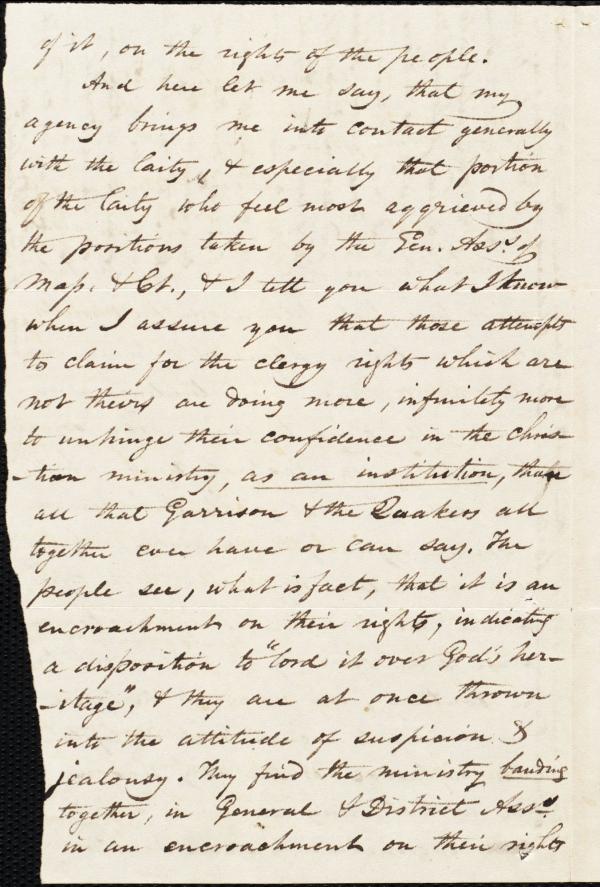 of it, on the rights of the people.
And here let me say, that my
agency brings me into contact generally
with the laity, & especially that portion
of the laity who feel most aggrieved by
the positions taken by the Gen. Ass.s of
Mass. & Ct., & I tell you what I know
when I assure you that those attempts
to claim for the clergy rights which are
not theirs are doing more, infinitely more
to unhinge their confidence in the chris-
-tian ministry, as an institution, than
all that Garrison & the Quakers all
together ever have or can say. The
people see, what is fact, that it is an
encroachment on their rights, indicating
a disposition to "lord it over God's her-
-itage", & they are at once thrown
into the attitude of suspicion &
jealousy. They find the ministry banding
together, in General & District Ass.s
in an encroachment on their rights